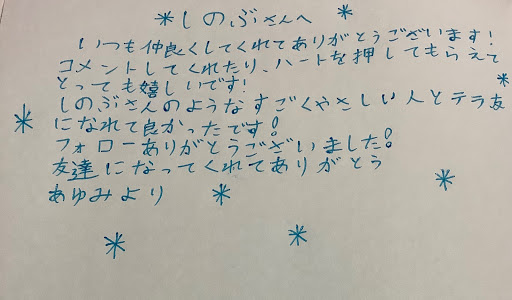 しのぶさんへ
いつも仲良くしてくれてありがとうございます!
コメントしてくれたり、ハートを押してもらえて
とっても嬉しいです!
しのぶさんのようなすごくやさしい人とテラ友
になれて良かったです!
フォローありがとうございました!
友達になってくれてありがとう
あゆみより